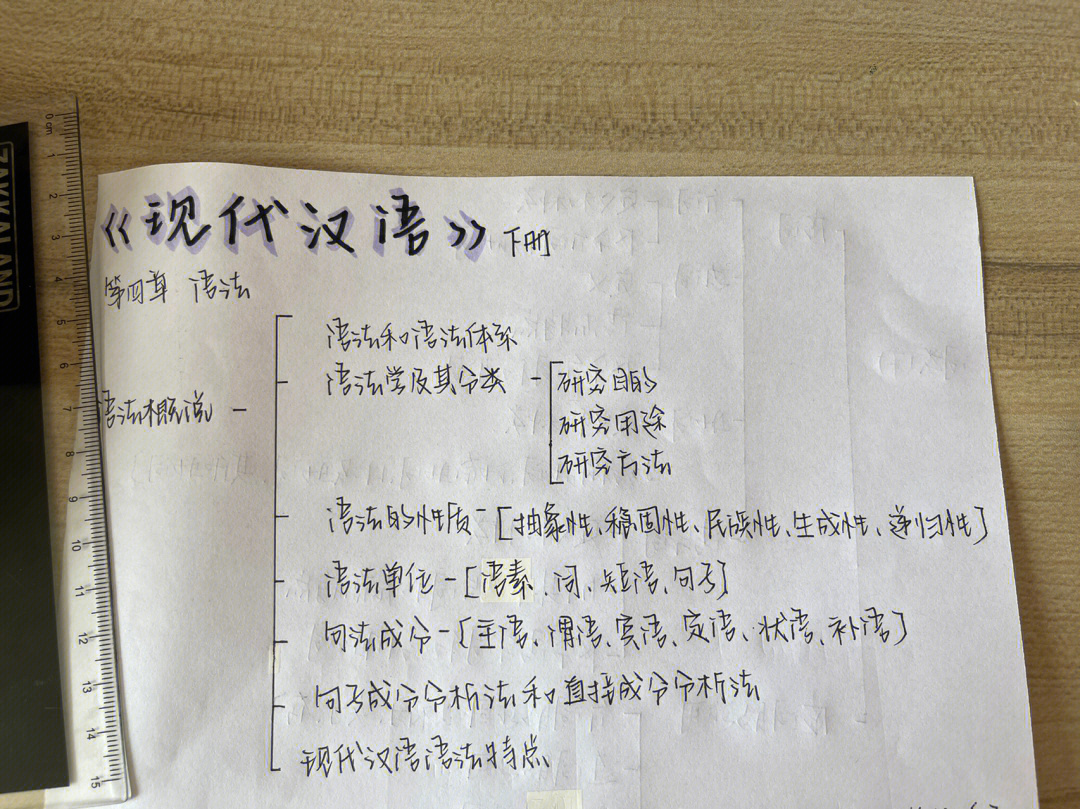 《现代汉语》下册
第四章 语法
语法概说
语法和语法体系
语法学及其分类
研究目的
研究用途
研究方法
语法的性质-[抽象性、稳固性、民族性、生成性、递归性]
语法单位-[语素、词、短语、句子]
句法成分-[主语、谓语、宾语、定语、状语、补语]
句子成分分析法和直接成分分析法
现代汉语语法特点
ZAKKALAND
0cm 1 2 3 4 5 6 7 8 9 10 11 12 13 14 15